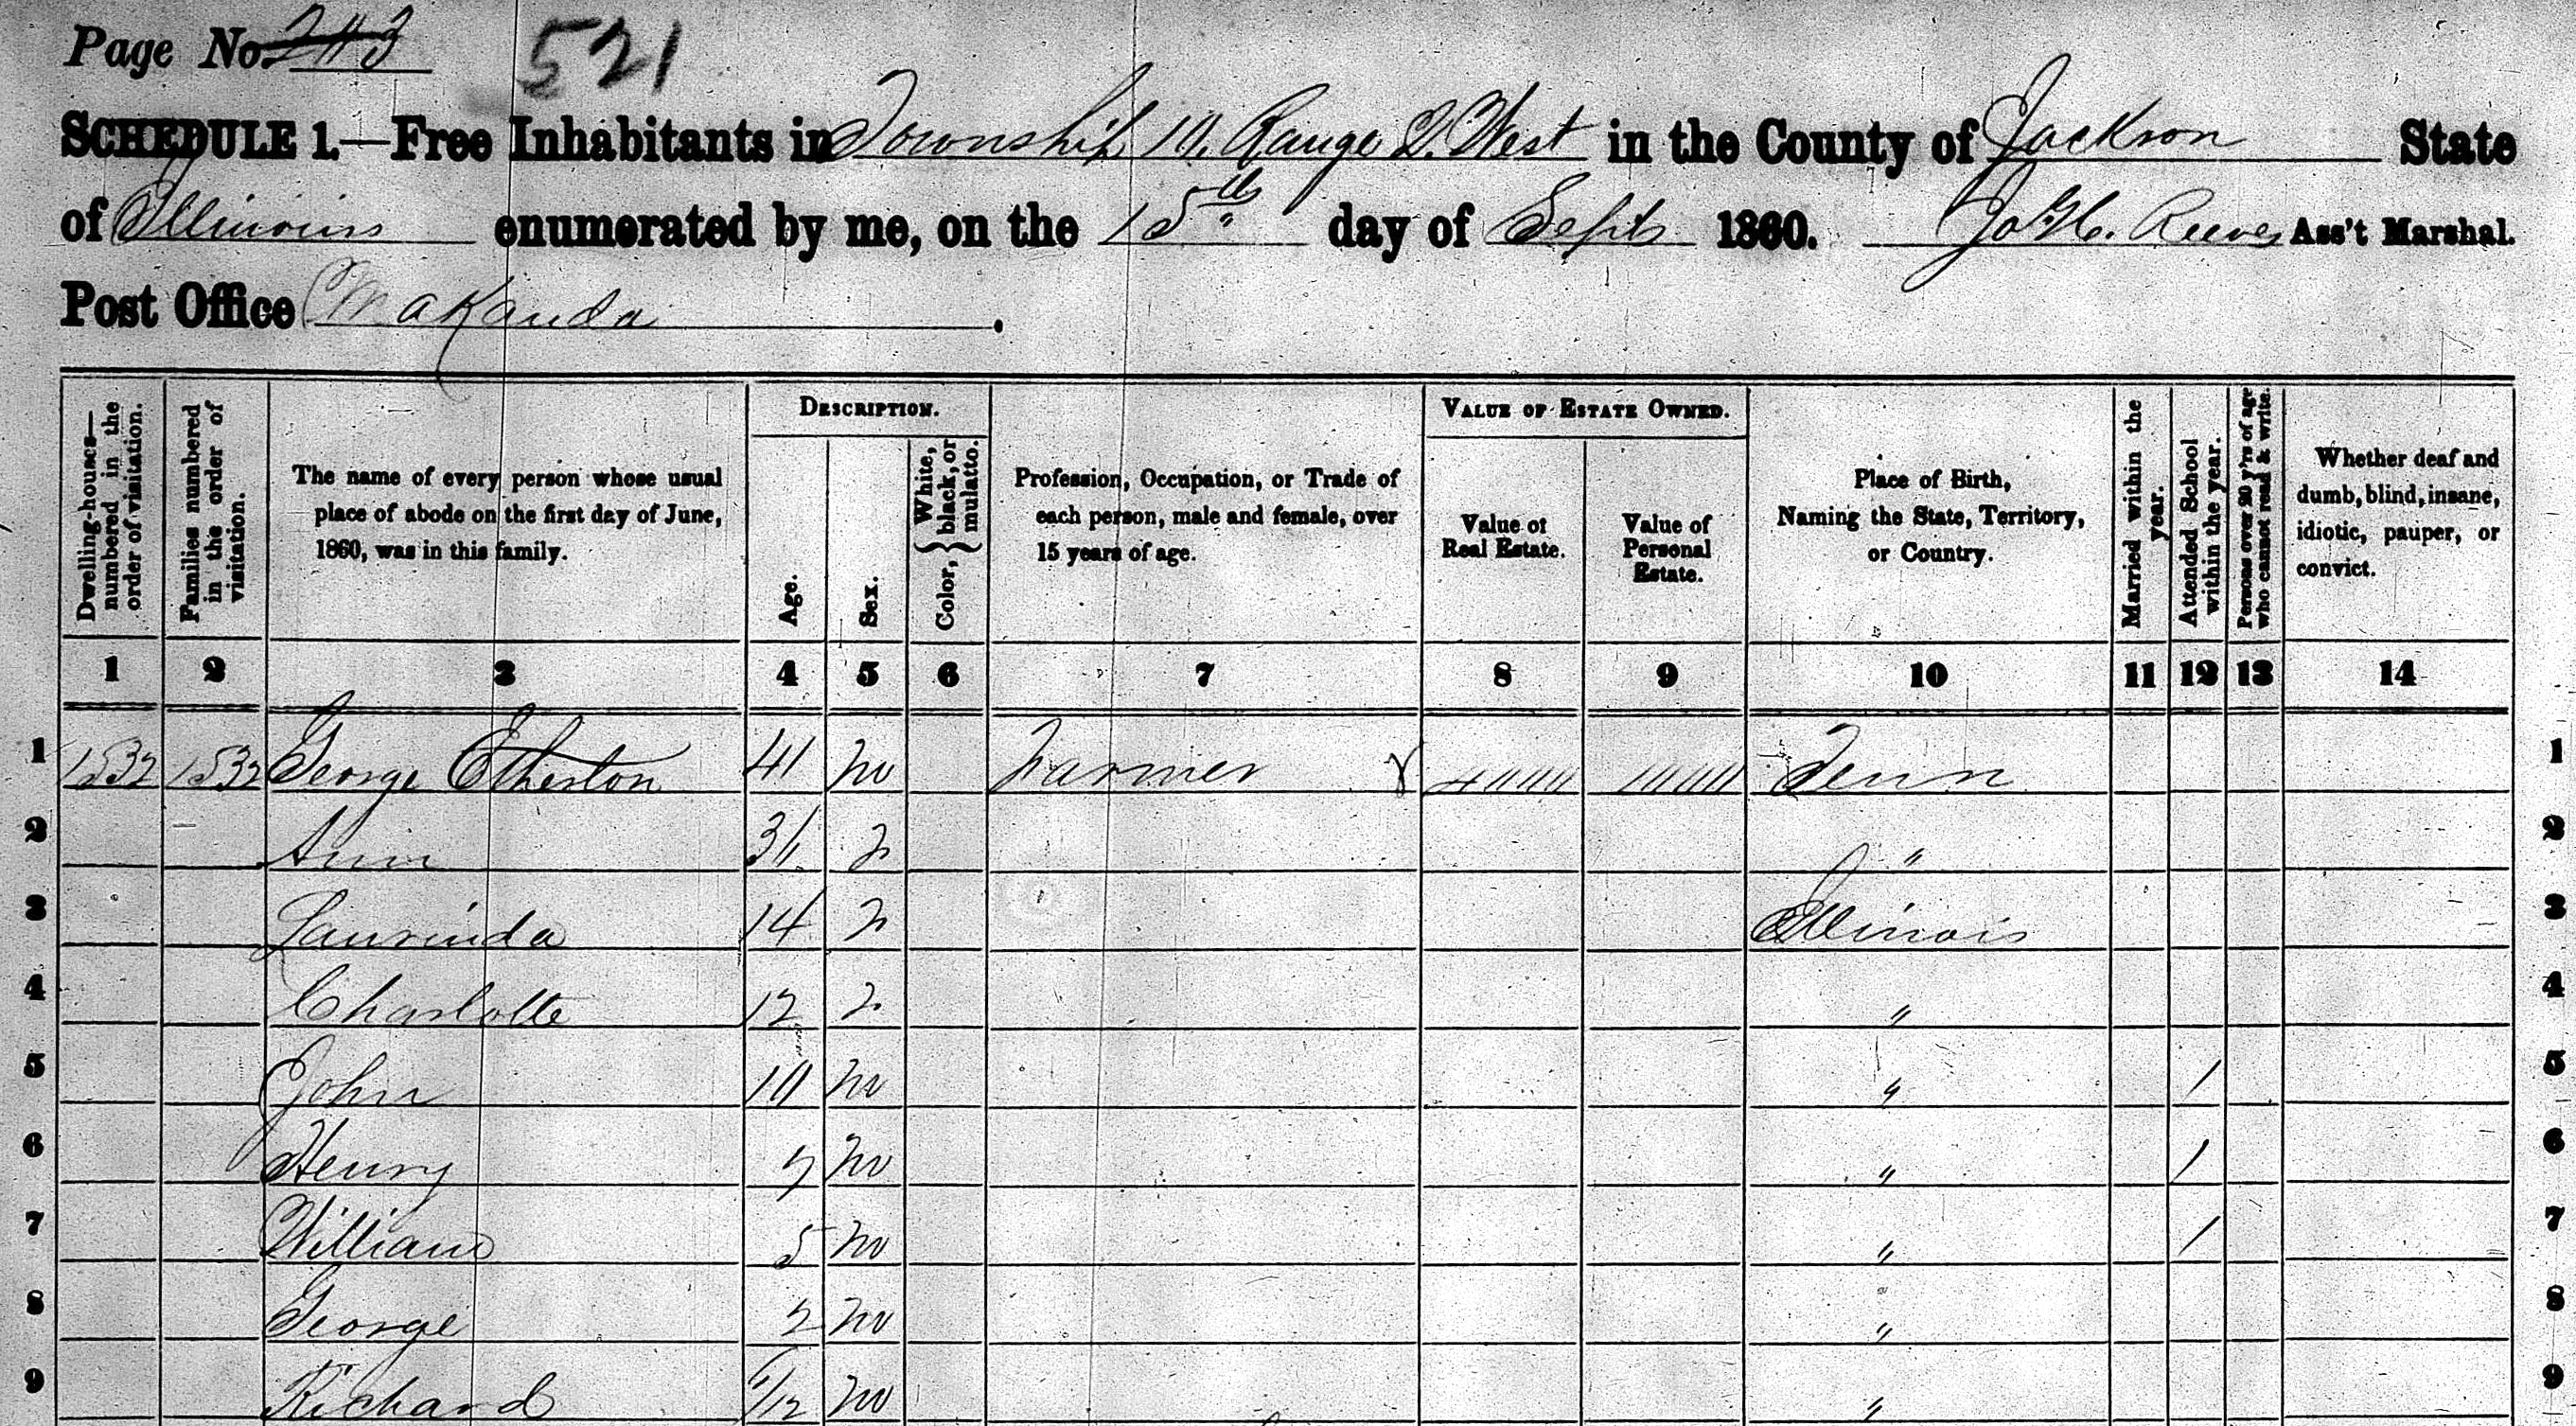 Page No. 243 521
SCHEDULE 1.—Free Inhabitants in Township 10. Range 2. West in the County of Jackson State
of Illinoins enumerated by me, on the 15th day of Sept 1860. Jo H. Reeves Ass't Marshal.
Post Office Makanda.
Dwelling-houses—
numbered in the
order of visitation.
Families numbered
in the order of
visitation.
The name of every person whose usual
place of abode on the first day of June,
1860, was in this family.
DESCRIPTION.
Age.
Sex.
Color, { White, black, or mulatto. }
Profession, Occupation, or Trade of
each person, male and female, over
15 years of age.
VALUE OF ESTATE OWNED.
Value of
Real Estate.
Value of
Personal
Estate.
Place of Birth,
Naming the State, Territory,
or Country.
Married within the
year.
Attended School
within the year.
Persons over 20 y'rs of age
who cannot read & write.
Whether deaf and
dumb, blind, insane,
idiotic, pauper, or
convict.
1 2 3 4 5 6 7 8 9 10 11 12 13 14
1 1532 1532 George Etherton 41 m Farmer 4000 1000 Tenn 1
2 Ann 31 f " 2
3 Laurinda 14 f Illinois 3
4 Charlotte 12 f " 4
5 John 10 m " / 5
6 Henry 7 m " / 6
7 William 5 m " / 7
8 George 2 m " 8
9 Richard /12 m " 9